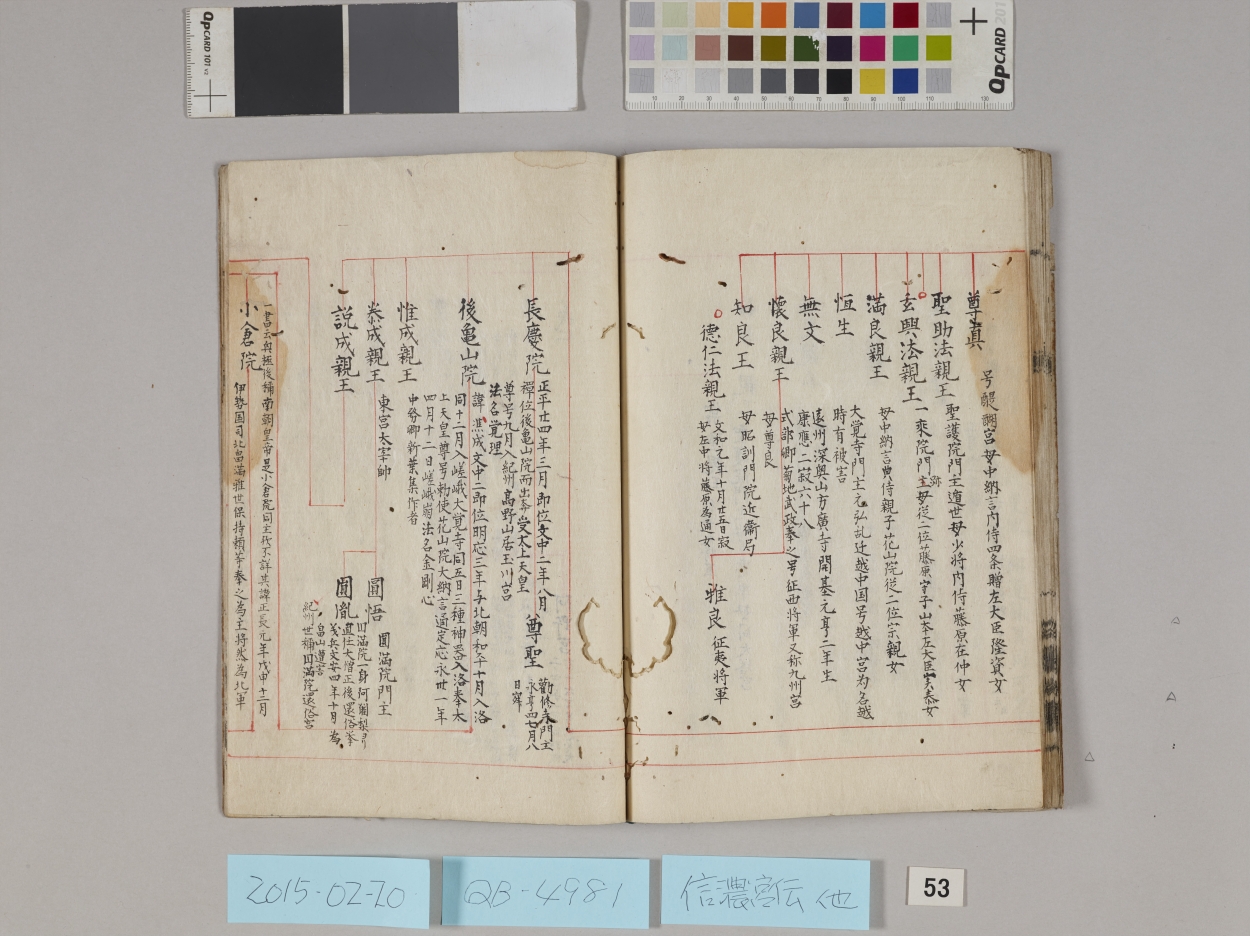 尊真
号醍醐宮母中納言内侍四条贈左大臣隆資女
聖助法親王
聖護院門主道世母少将内侍藤原在仲女
玄興法親王
一乗院門主母従二位藤原守子山本左大臣実泰女
満良親王
母中納言典侍親子花山院従二位宗親女
恒生
大覚寺門主元弘乱迁越中国号越中宮为名越
時有被害
無文
遠州深奥山方廣寺開基元亨二年生
康應二寂六十八
懐良親王
式部卿菊地武政奉之号征西将軍又称九州宮
母尊良
雅良
征夷将軍
知良王
母昭訓門院近衞局
德仁法親王
文和元年十月廿五日寂
母左中将藤原為通女
長慶院
正平廿四年三月即位文中二年八月
禪位後亀山院而出奔受太上天皇
尊号九月入紀州高野山居玉川宮
法名覚理
尊聖
勸修寺門主
永享四七月八
日寂
後亀山院
諱凞成文中二即位明応三年与北朝和午十月入洛
同十二月入嵯峨大覚寺同五日三種神器入洛奉太
上天皇尊号勅使花山院大納言通定応永卅一年
四月十二日嵯峨崩法名金剛心
惟成親王
中務卿新葉集作者
泰成親王
東宮太宰帥
圓悟
圓滿院門主
説成親王
圓胤
田滿院一身阿闍梨
還任大僧正後還俗峯
戈兵文安四年十月為
畠山遭害
紀州世稱田滿院還俗宮
小倉院
一書云與極後稱南朝皇帝是小倉院同主我不詳其諱正長元年戊申十二月
伊勢国司北畠滿雅世保持頼等奉之為主将然為北軍
QPCARD 101 v3
QPCARD 201
2015-02-20
QB-4981
信濃宮伝 他
53